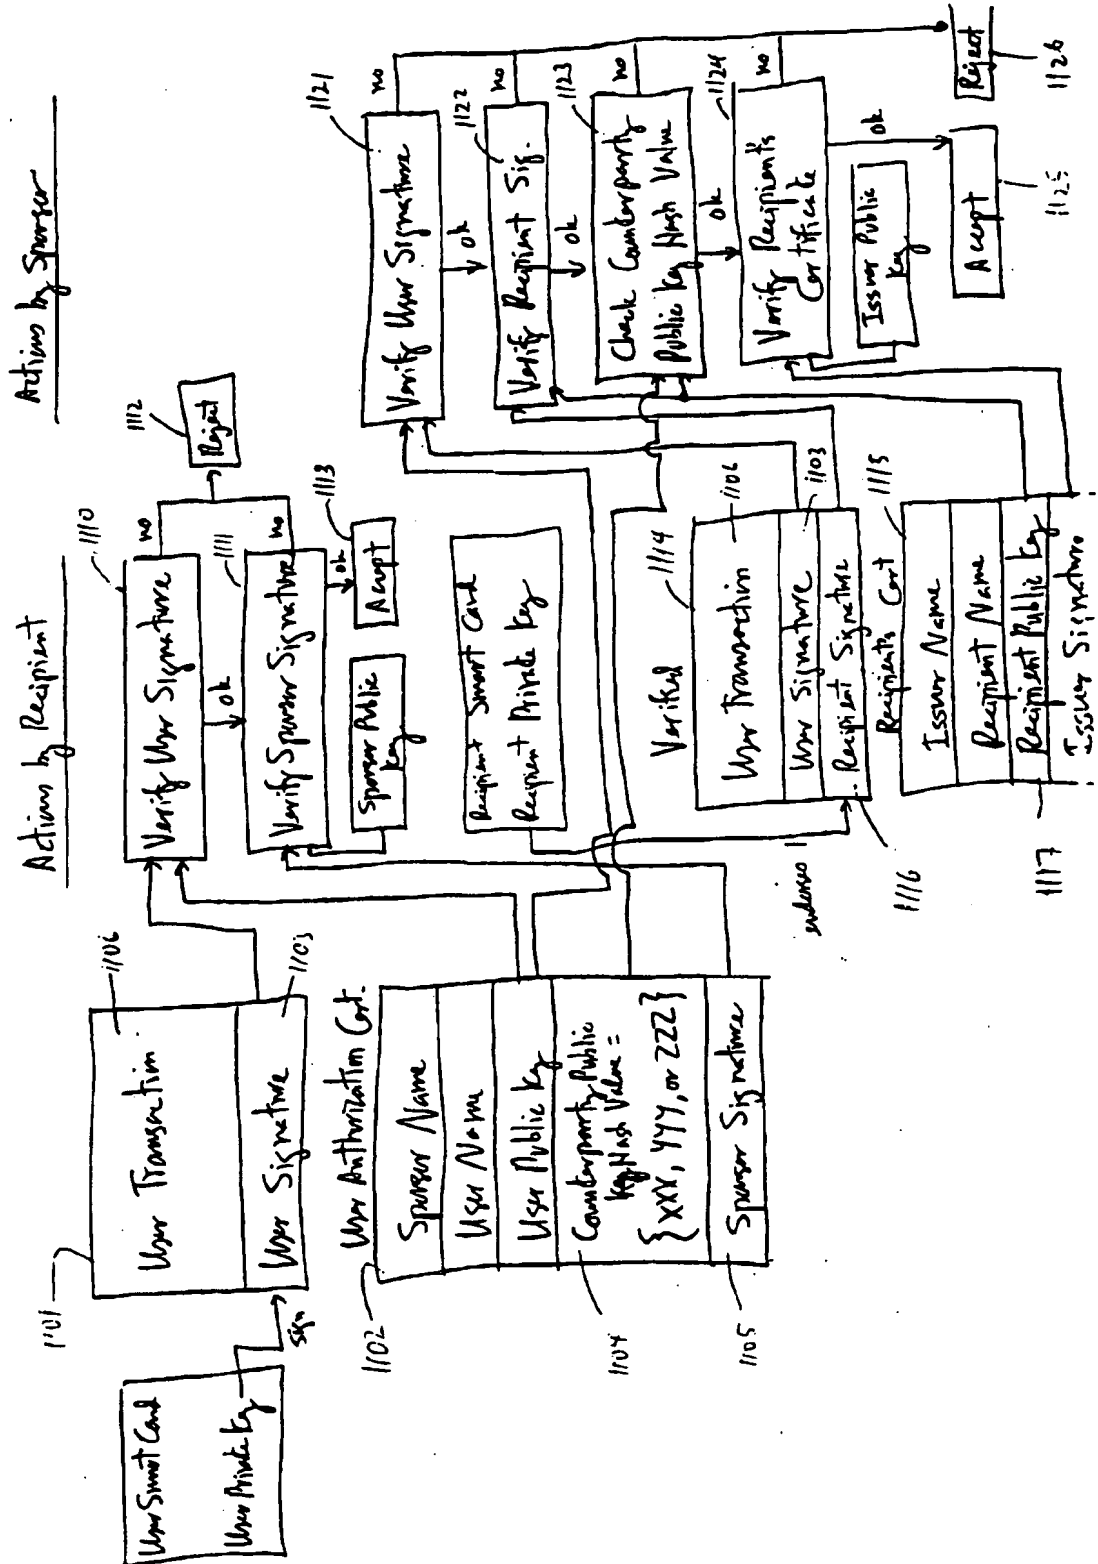 User Smart Card
User Private Key
sign
1101
User Transaction
1106
User Signature
1103
1102
User Authorization Cert.
Sponsor Name
User Name
User Public Key
Counterparty Public
Key Hash Value =
{XXX, YYY, or ZZZ}
1104
Sponsor Signature
1105
Actions by Recipient
1110
Verify User Signature
no
ok
1111
Verify Sponsor Signature
no
1112
Reject
ok
1113
Accept
Sponsor Public
Key
Recipient Smart Card
Recipient Private Key
endorses
Verified
1114
User Transaction
1106
User Signature
1103
Recipient Signature
1116
Recipients Cert
1115
Issuer Name
Recipient Name
Recipient Public Key
1117
Issuer Signature
Actions by Sponsor
1121
Verify User Signature
no
ok
1122
Verify Recipient Sig.
no
ok
1123
Check Counterparty
Public Key Hash Value
no
ok
1124
Verify Recipients
Certificate
no
ok
Issuer Public
Key
Accept
1125
Reject
1126